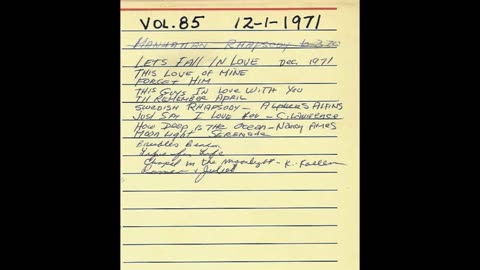 VOL. 85 12-1-1971
MANHATTAN RHAPSODY
LETS FALL IN LOVE DEC. 1971
THIS LOVE OF MINE
FORGET HIM
THIS GUYS IN LOVE WITH YOU
I'LL REMEMBER APRIL
SWEDISH RHAPSODY -
JUST SAY I LOVE HER - C.
HOW DEEP IS THE OCEAN - NANCY AMES
MOONLIGHT SERENADE
Live for Life
Chapel in the Moonlight - K. Kallen
Romeo & Juliet